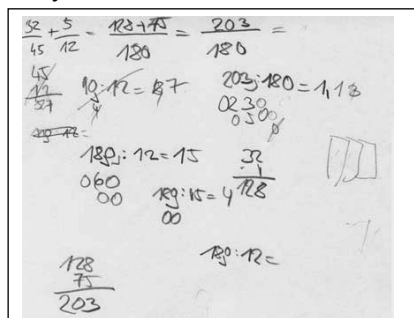 32/45 + 5/12 = 128+75/180 = 203/180 =
45
12
27
203:180=1,1
0230
0500
180:12=15
060
00
180:15=4
00
32
4
128
180:12=
128
75
203